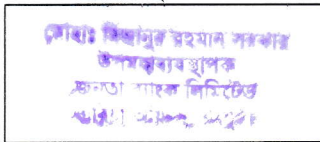 মোহাঃ মিজানুর রহমান সরকার
উপমহাব্যবস্থাপক
জনতা ব্যাংক লিমিটেড